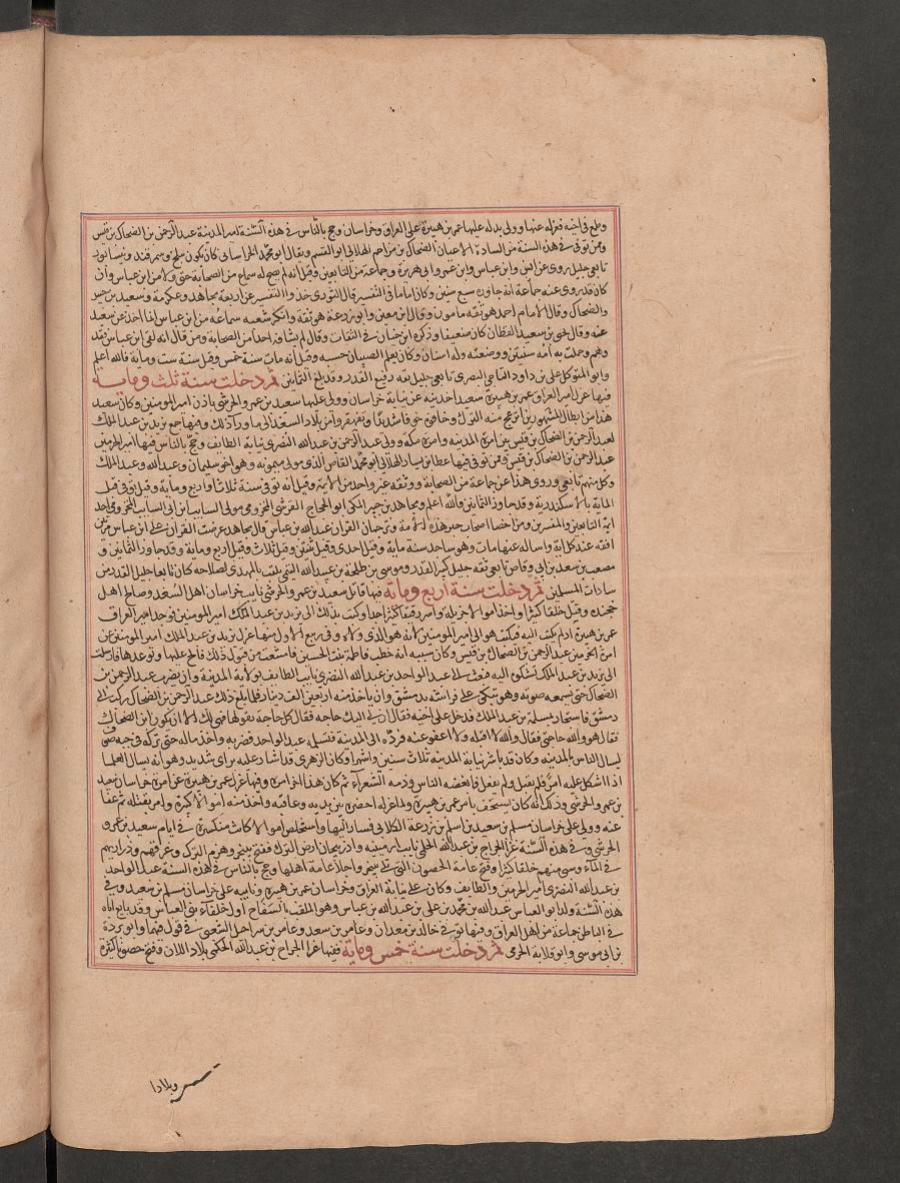 وطمع في اخيه فعزله عنها وولى بدله عليها عمر بن هبيرة على العراق وخراسان وحج بالناس في هذه السنة امير المدينة عبد الرحمن بن الضحاك بن قيس
وممن توفي في هذه السنة من السادة الاعيان الضحاك بن مزاحم الهلالي ابو القسم ويقال ابو محمد الخراساني كان يكون ببلخ وسمرقند ونيسابور
تابعي جليل روى عن انس وابن عباس وابن عمر وابي هريرة وجماعة من التابعين وقيل انه لم يصح له سماع من الصحابة حتى ولا من ابن عباس وان
كان قد روى عنه جماعة انه جاوره سبع سنين وكان اماما في التفسير قال الثوري خذوا التفسير عن اربعة مجاهد وعكرمة وسعيد بن جبير
والضحاك وقال الامام احمد هو ثقة مامون وقال ابن معين وابو زرعة هو ثقة وانكر شعبه سماعه من ابن عباس انما اخذ عن سعيد
عنه وقال يحيى بن سعيد القطان كان ضعيفا وذكره ابن حبان في الثقات وقال لم يشافه احدا من الصحابة ومن قال انه لقي ابن عباس فقد
وهم وحملت به امه سنتين ووضعته وله اسنان وكان يعلم الصبيان حسبه وقيل انه مات سنة خمس وقيل سنة ست ومائة فالله اعلم
وابو المتوكل علي بن داود الناجي البصري تابعي جليل ثقه رفيع القدر وقد بلغ الثمانين ثم دخلت سنة ثلث وماية
فيها عزل امير العراق عمر بن هبيرة سعيدا خذينه عن نيابة خراسان وولى عليها سعيد بن عمرو الحرشي باذن امير المومنين وكان سعيد
هذا من ابطال المشهورين انزعج منه الترك وخافوه خوفا شديدا وتقهقروا من بلاد السغد الى ما وراء ذلك وفيها جمع يزيد بن عبد الملك
لعبد الرحمن بن الضحاك بن قيس بين امرة المدينه وامرة مكه وولى عبد الرحمن بن عبد الله النضري نيابة الطايف وحج بالناس فيها امير الحرمين
عبد الرحمن بن الضحاك بن قيس وممن توفي فيها عطا بن يسار الهلالي ابو محمد القاص الذي مولى ميمونه وهو اخو سليمان وعبد الله وعبد الملك
وكل منهم تابعي وروى هذا عن جماعة من الصحابة ووثقه غير واحد من الايمة وقيل انه توفي سنة ثلاث او اربع وماية وقيل توفي قبل
الماية بالاسكندرية وقد جاوز الثمانين والله اعلم ومجاهد بن جبر المكي ابو الحجاج القرشي المخزومي مولى السايب بن ابي السايب المخزومي احد
ايمة التابعين والمفسرين ومن اخصا اصحاب حبر هذه الامة وترجمان القران عبد الله بن عباس قال مجاهد عرضت القران على ابن عباس مرتين
اقفه عند كل اية واساله عنها مات وهو ساجد سنة ماية وقيل احدى وقيل ثنتين وقيل ثلاث وقيل اربع وماية وقد جاوز الثمانين و
مصعب بن سعد بن ابي وقاص تابعي ثقه جليل كبير القدر وموسى بن طلحة بن عبيد الله التيمي يلقب بالمهدي لصلاحه كان تابعيا جليل القدر من
سادات المسلمين ثم دخلت سنة اربع ومائة فيها قاتل سعيد بن عمرو الحرشي نايب خراسان اهل السغد وصالح اهل
خجنده وقتل خلقا كثيرا واخذ اموالا جزيله واسر رقيقا كثيرا جدا وكتب بذلك الى يزيد بن عبد الملك امير المومنين فوجد امير العراق
عمر بن هبيرة اذ لم يكتب اليه فيكتب هو الى امير المومنين لانه هو الذي ولاه وفي ربيع الاول منها عزل يزيد بن عبد الملك امير المومنين عن
امرة الحرمين عبد الرحمن بن الضحاك بن قيس وكان سببه انه خطب فاطمة بنت الحسين فامتنعت من قبول ذلك فالح عليها وتوعدها فارسلت
الى يزيد بن عبد الملك تشكوه اليه فبعث الى عبد الواحد بن عبد الله النضري نايب الطايف بولاية المدينة وان يضرب عبد الرحمن بن
الضحاك حتى يسمعه صوته وهو متكئ على فراشه بدمشق وان ياخذ منه اربعين الف دينار فلما بلغ ذلك عبد الرحمن بن الضحاك ركب الى
دمشق فاستجار بمسلمة بن عبد الملك فدخل على اخيه فقال ان لي اليك حاجه فقال كل حاجه تقولها فهي لك الا ان يكون ابن الضحاك
فقال هو والله حاجتي فقال والله لا اقبله ولا اعفو عنه فرده الى المدينة فتسلمه عبد الواحد فضربه واخذ ماله حتى تركه في جبه صوف
يسال الناس بالمدينه وكان قد باشر نيابة المدينه ثلاث سنين واشهرا وكان الزهري قد اشار عليه براى سديد وهو انه يسال العلما
اذا اشكل عليه امر فلم يقبل ولم يفعل فابغضه الناس وذمه الشعراء ثم كان هذا اخر امره وفيها عزل عمر بن هبيرة عن امرة خراسان سعيد
بن عمرو الحرشي وذلك انه كان يستخف بامر عمر بن هبيرة ولما عزله احضره بين يديه وعاقبه واخذ منه اموالا كثيرة وامر بقتله ثم عفا
عنه وولى على خراسان مسلم بن سعيد بن اسلم بن زرعة الكلابي فسار اليها واستخلص اموالا كانت منكسرة في ايام سعيد بن عمرو
الحرشي وفي هذه السنة غزا الجراح بن عبد الله الحكمي نايب ارمينيه واذربيجان ارض الترك ففتح بلنجر وهزم الترك وغرقهم وذراريهم
في الماء وسبى منهم خلقا كثيرا وفتح عامة الحصون التي تلي بلنجر واجلا عامة اهلها وحج بالناس في هذه السنة عبد الواحد
بن عبد الله النضري امير الحرمين والطايف وكان على نيابة العراق وخراسان عمر بن هبيرة ونايبه على خراسان مسلم بن سعيد وفي
هذه السنة ولد ابو العباس عبد الله بن محمد بن علي بن عبد الله بن عباس وهو الملقب بالسفاح اول خلفاء بني العباس وقد بايع اباه
في الباطن جماعة من اهل العراق وفيها توفي خالد بن معدان وعامر بن سعد وعامر بن شراحيل الشعبي في قول فيها وابو بردة
بن ابي موسى وابو قلابة الجرمي ثم دخلت سنة خمس وماية فيها غزا الجراح بن عبد الله الحكمي بلاد اللان وفتح حصونا كثيرة
وبلادا